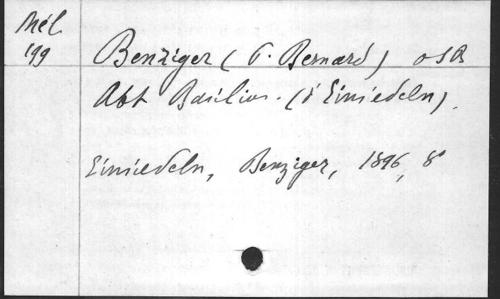 Mél
199
Benziger (P. Bernard) OSB
Abt Basilius. (d'Einsiedeln).
Einsiedeln, Benziger, 1896, 8°